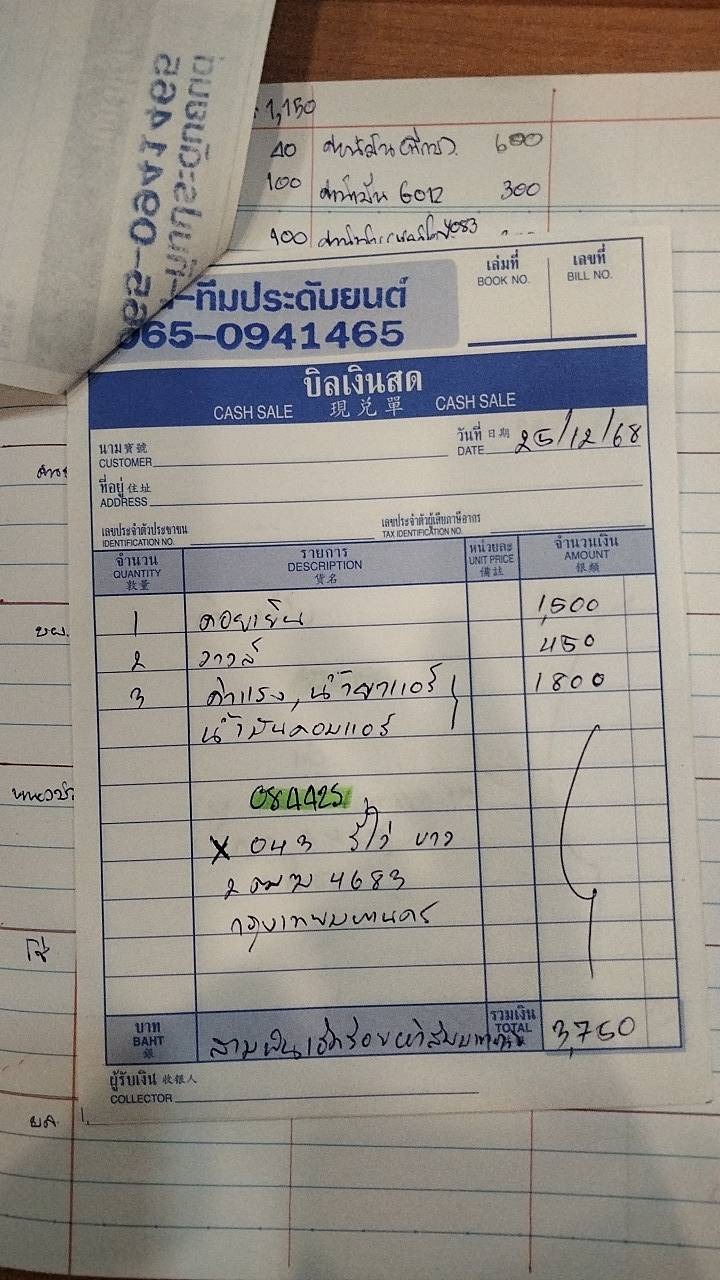 1,150
40 ค่าน้ำมัน 600
100 ค่าน้ำมัน 6012 300
100
-ทีมประดับยนต์
065-0941465
เล่มที่
BOOK NO.
เลขที่
BILL NO.
บิลเงินสด
CASH SALE 現兌單 CASH SALE
นาม寶號
CUSTOMER
วันที่ 日期
DATE 25/12/68
ที่อยู่ 住址
ADDRESS
เลขประจำตัวประชาชน
IDENTIFICATION NO.
เลขประจำตัวผู้เสียภาษีอากร
TAX IDENTIFICATION NO.
จำนวน รายการ หน่วยละ จำนวนเงิน
QUANTITY DESCRIPTION UNIT PRICE AMOUNT
數量 貨名 備註 銀額
1 คอยเย็น 1,500
2 วาวล์ 450
3 ค่าแรง, น้ำยาแอร์ 1800
น้ำมันคอมแอร์
084425
X 043 รีโว่ ขาว
2ฒฆ 4683
กรุงเทพมหานคร
บาท
BAHT
銀
สามพันเจ็ดร้อยห้าสิบบาทถ้วน
รวมเงิน
TOTAL
3,750
ผู้รับเงิน 收銀人
COLLECTOR